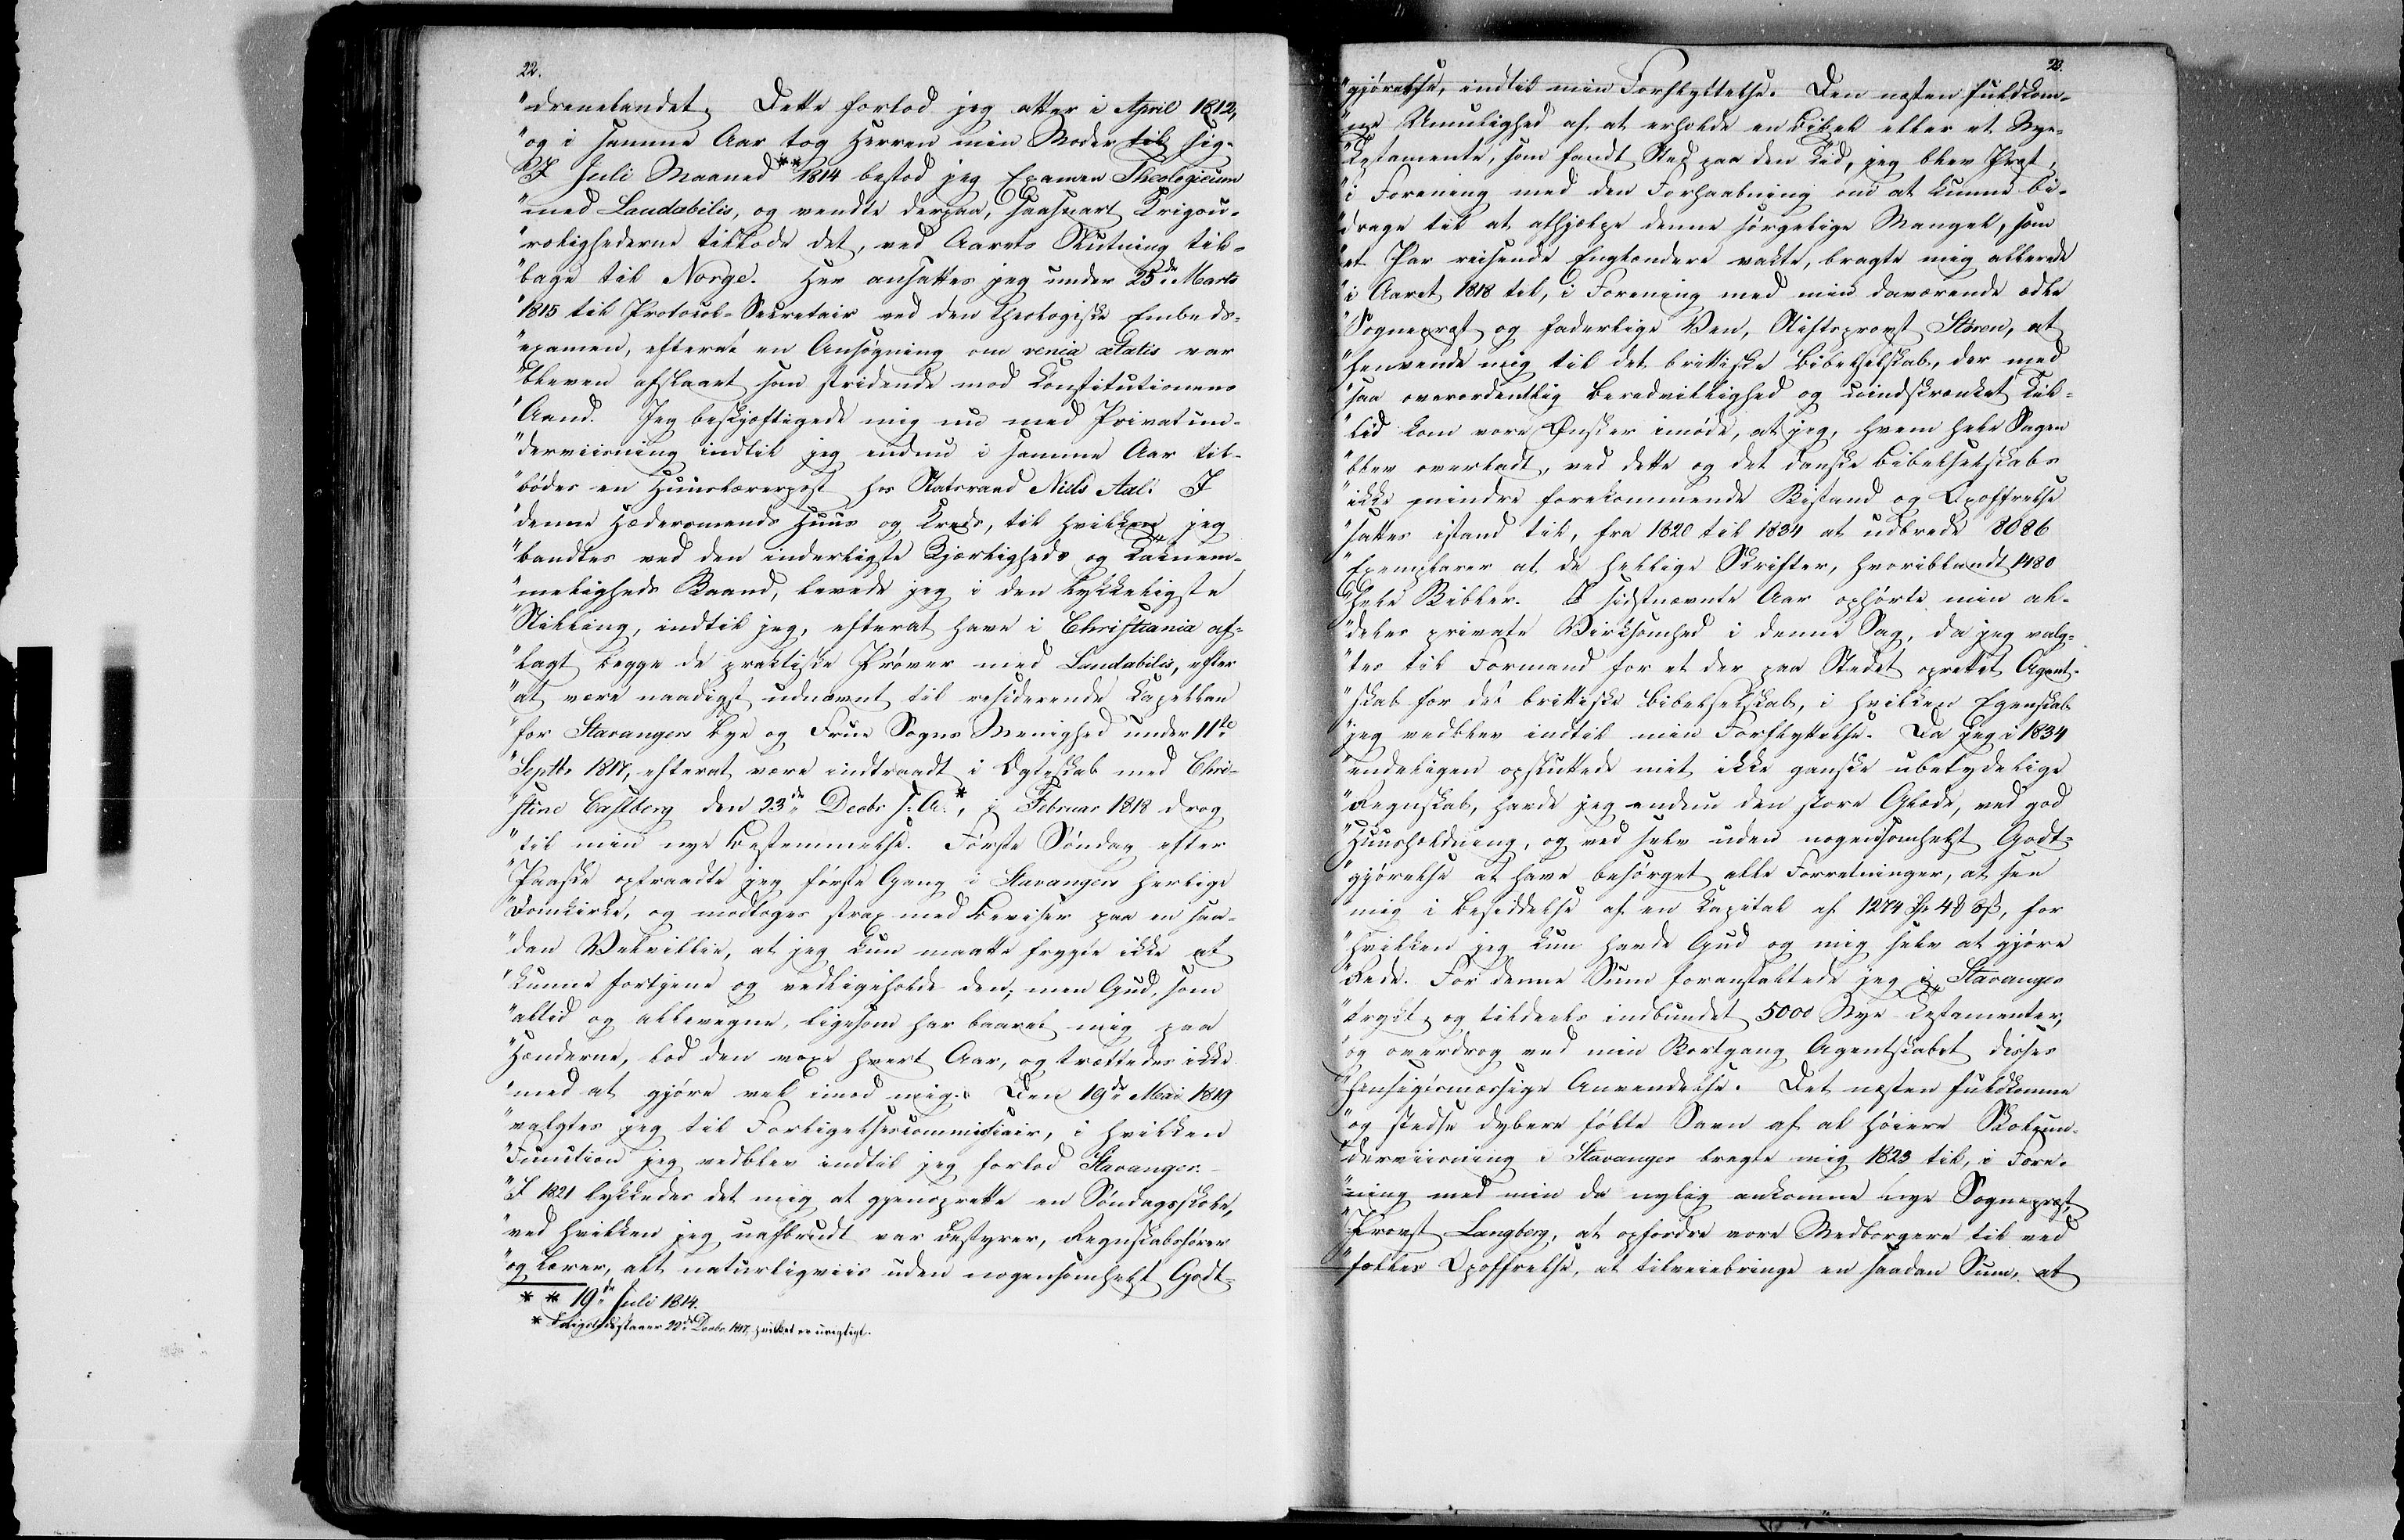 22.
"drenelandet. Dette forlod jeg atter i April 1812,
"og i samme Aar tog Herren min Moder til sig.
"I Juli Maaned ** 1814 bestod jeg Examen Theologicum
"med Laudabilis, og vendte derpaa, saasnart Krigsu-
"rolighederne tillode det, ved Aarets Slutning til-
"bage til Norge. Her ansattes jeg under 25de Marts
"1815 til Protocol-Secretair ved den theologiske Embeds-
"examen, efterat en Ansøgning om venia ætatis var
"bleven afslaaet som stridende mod Constitutionens
"Aand. Jeg beskjæftigede mig nu med Privatun-
"derviisning indtil jeg endnu i samme Aar til-
"bødes en Huuslærerpost hos Statsraad Niels Aal. I
"denne Hædersmands Huus og Kreds, til hvilken jeg
"bandtes ved den inderligste Kjærligheds og Taknem-
"meligheds Baand, levede jeg i den lykkeligste
"Stilling, indtil jeg, efterat have i Christiania af-
"lagt begge de praktiske Prøver med Laudabilis, efter
"at være naadigst udnævnt til residerende Kapellan
"for Stavangers Bye og Frue Sogns Menighed under 11te
"Septbr 1817, efterat være indtraadt i Ægteskab med Chri-
"stine Castberg den 23de Decbr s. A.*, i Februar 1818 drog
"til min nye Bestemmelse. Første Søndag efter
"Paaske optraadte jeg første Gang i Stavangers herlige
"Domkirke, og modtoges strax med Beviser paa en saa-
"dan Velvillie, at jeg kun maatte frygte ikke at
"kunne fortjene og vedligeholde den; men Gud, som
"altid og allevegne, ligesom har baaret mig paa
"Hænderne, lod den voxe hvert Aar, og trættedes ikke
"med at gjøre vel imod mig. Den 19de Mai 1819
"valgtes jeg til Forligelsescommissair, i hvilken
"Function jeg vedblev indtil jeg forlod Stavanger.
"I 1821 lykkedes det mig at gjenoprette en Søndagsskole,
"ved hvilken jeg uafbrudt var Bestyrer, Regnskabsfører
"og Lærer, alt naturligviis uden nogensomhelst Godt-
* * 19de Juli 1814.
* 22de Decbr 1817, hvilket er urigtigt.
23.
"gjørelse, indtil min Forflyttelse. Den næsten fuldkom-
"ne Umulighed af at erholde en Bibel eller et Nye-
"Testamente, som fandt Sted paa den Tid, jeg blev Præst,
"i Forening med den Forhaabning om at kunne bi-
"drage til at afhjælpe denne sørgelige Mangel, som
"et Par reisende Englændere vakte, bragte mig allerede
"i Aaret 1818 til, i Forening med min daværende ædle
"Sognepræst og faderlige Ven, Stiftsprovst Støren, at
"henvende mig til det brittiske Bibelselskab, der med
"saa overordentlig Beredvillighed og uindskrænket Til-
"lid kom vore Ønsker imøde, at jeg, hvem hele Sagen
"blev overladt, ved dette og det danske Bibelselskabs
"ikke mindre forekommende Bistand og Opoffrelse
"sattes istand til, fra 1820 til 1834 at udbrede 8086
"Exemplarer af de hellige Skrifter, hvoriblandt 1480
"hele Bibler. I sidstnævnte Aar ophørte min al-
"deles private Virksomhed i denne Sag, da jeg valg-
"tes til Formand for et der paa Stedet oprettet Agent-
"skab for det brittiske Bibelselskab, i hvilken Egenskab
"jeg vedblev indtil min Forflyttelse. Da jeg i 1834
"endeligen opsluttede mit ikke ganske ubetydelige
"Regnskab, havde jeg endnu den store Glæde, ved god
"Huusholdning, og ved selv uden nogensomhelst Godt-
"gjørelse at have besørget alle Forretninger, at see
"mig i Besiddelse af en Kapital af 1274 Spd. 4 8 ß, for
"hvilken jeg kun havde Gud og mig selv at gjøre
"Rede. For denne Sum foranstaltede jeg i Stavanger
"trykt, og tildeels indbundet 5000 Nye Testamenter,
"og overdrog ved min Bortgang Agentskabet disses
"hensigtsmæssige Anvendelse. Det næsten fuldkomne
"og stedse dybere følte Savn af al høiere Skoleun-
"derviisning i Stavanger bragte mig 1823 til, i Fore-
"ning med min da nylig ankomne nye Sognepræst,
"Provst Langberg, at opfordre vore Medborgere til ved
"fælles Opoffrelse, at tilveiebringe en saadan Sum, at